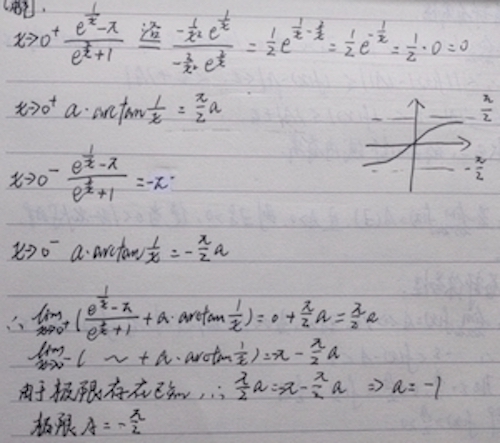 [解].
x→0⁺ (e^{1/x}-π)/(e^{2/x}+1) 洛 (-1/x² e^{1/x})/(-2/x² e^{2/x}) = 1/2 e^{1/x-2/x} = 1/2 e^{-1/x} = 1/2·0=0
x→0⁺ a·arctan 1/x = π/2 a
π/2
-π/2
x→0⁻ (e^{1/x}-π)/(e^{2/x}+1) = -π
x→0⁻ a·arctan 1/x = -π/2 a
∴ lim_{x→0⁺} ( (e^{1/x}-π)/(e^{2/x}+1) + a·arctan 1/x ) = 0+π/2 a = π/2 a
lim_{x→0⁻} ( ~ + a·arctan 1/x ) = -π - π/2 a
由于极限存在已知, ∴ π/2 a = -π - π/2 a ⇒ a = -1
极限A = -π/2